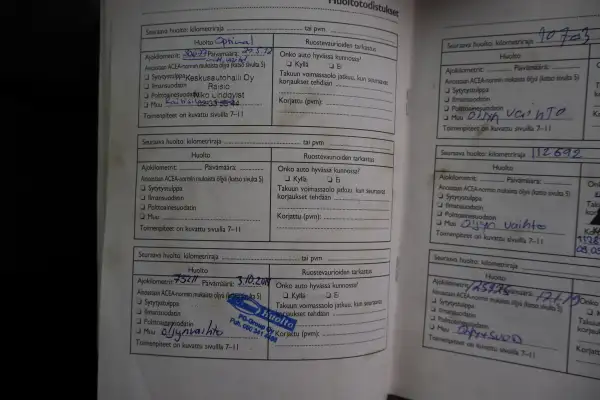 Huoltotodistukset
Seuraava huolto: kilometreinä tai pvm
Huolto Optimal
Ajokilometrit: Päivämäärä:
Ainoastaan ACEA-normin mukaista öljyä (katso sivulta 5)
Sytytystulppa Keskusautohalli Oy
Ilmansuodatin Raisio
Polttoainesuodatin Niko Lindqvist
Muu
Toimenpiteet on kuvattu sivuilla 7-11
Ruostevaurioiden tarkastus
Onko auto hyvässä kunnossa?
Kyllä Ei
Takuun voimassaolo jatkuu, kun seuraavat
korjaukset tehdään
Korjattu (pvm):
Seuraava huolto: kilometreinä tai pvm
Huolto
Ajokilometrit: Päivämäärä:
Ainoastaan ACEA-normin mukaista öljyä (katso sivulta 5)
Sytytystulppa
Ilmansuodatin
Polttoainesuodatin
Muu
Toimenpiteet on kuvattu sivuilla 7-11
Ruostevaurioiden tarkastus
Onko auto hyvässä kunnossa?
Kyllä Ei
Takuun voimassaolo jatkuu, kun seuraavat
korjaukset tehdään
Korjattu (pvm):
Seuraava huolto: kilometreinä tai pvm
Huolto
Ajokilometrit: Päivämäärä: 3.10.2011
Ainoastaan ACEA-normin mukaista öljyä (katso sivulta 5)
Sytytystulppa
Ilmansuodatin
Polttoainesuodatin
Muu öljynvaihto
Toimenpiteet on kuvattu sivuilla 7-11
Ruostevaurioiden tarkastus
Onko auto hyvässä kunnossa?
Kyllä Ei
Takuun voimassaolo jatkuu, kun seuraavat
korjaukset tehdään
Huolto
PG-Group Oy
Korjattu (pvm):
Seuraava huolto: kilometreinä
Huolto
Ajokilometrit: Päivämäärä:
Ainoastaan ACEA-normin mukaista öljyä (katso sivulta 5)
Sytytystulppa
Ilmansuodatin
Polttoainesuodatin
Muu öljyn vaihto
Toimenpiteet on kuvattu sivuilla 7-11
Seuraava huolto: kilometreinä 112692
Huolto
Ajokilometrit: Päivämäärä:
Ainoastaan ACEA-normin mukaista öljyä (katso sivulta 5)
Sytytystulppa
Ilmansuodatin
Polttoainesuodatin
Muu öljyn vaihto
Toimenpiteet on kuvattu sivuilla 7-11
Seuraava huolto: kilometreinä
Huolto
Ajokilometrit: Päivämäärä:
Ainoastaan ACEA-normin mukaista öljyä (katso sivulta 5)
Sytytystulppa
Ilmansuodatin
Polttoainesuodatin
Muu
Toimenpiteet on kuvattu sivuilla 7-11